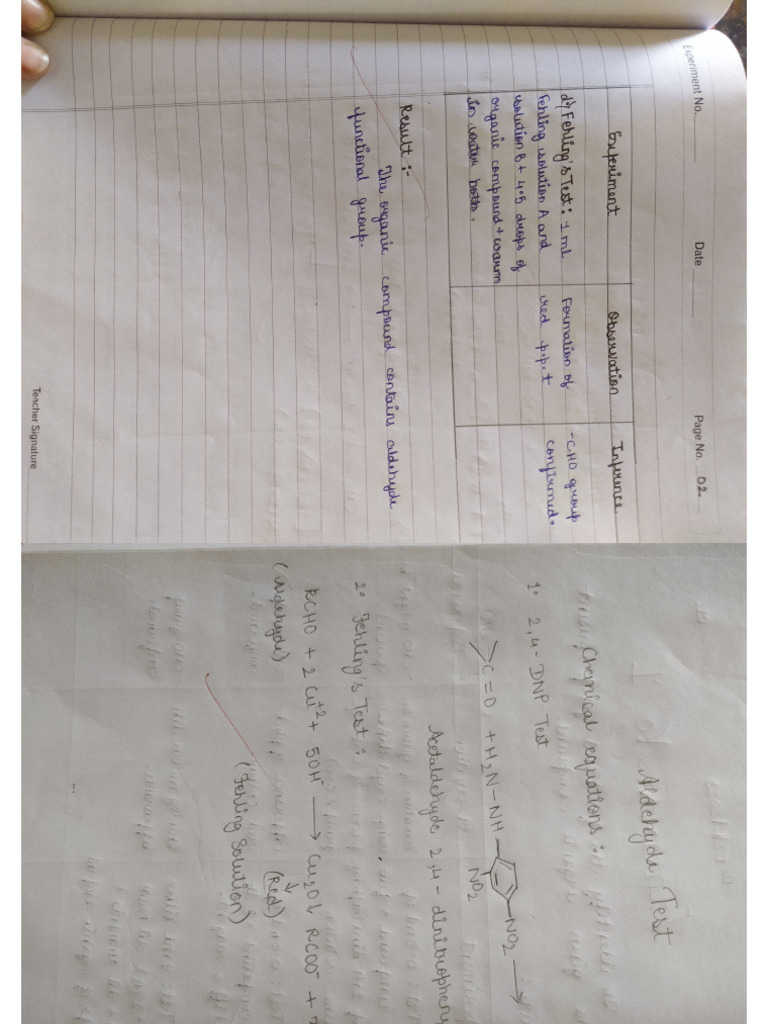 Experiment No.
Date
Page No. 02
Experiment
Observation
Inference
d) Fehling's Test: 1 ml
fehling solution A and
solution B + 4-5 drops of
organic compound + warm
in water bath.
Formation of
red p.p.t
-CHO group
confirmed.
Result :-
The organic compound contains aldehyde
functional group.
Teacher Signature
Aldehyde Test
Chemical equations :
1. 2,4-DNP Test
>C=O + H2N-NH- -NO2 →
NO2
Acetaldehyde 2,4-dinitropheny
2. Fehling's Test :
RCHO + 2 Cu+2 + 5OH- → Cu2O↓ RCOO- +
(Aldehyde)
(Red)
(Fehling Solution)